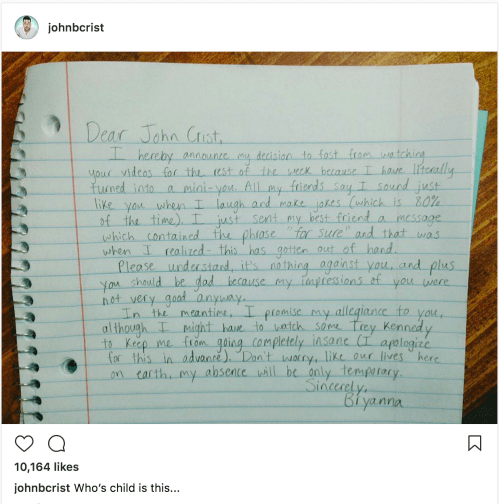 johnbcrist
Dear John Crist,
I hereby announce my decision to fast from watching
your videos for the rest of the week because I have literally
turned into a mini-you. All my friends say I sound just
like you when I laugh and make jokes (which is 80%
of the time). I just sent my best friend a message
which contained the phrase "for sure" and that was
when I realized- this has gotten out of hand.
Please understand, it's nothing against you, and plus
you should be glad because my impressions of you were
not very good anyway.
In the meantime, I promise my allegiance to you,
although I might have to watch some Trey Kennedy
to keep me from going completely insane (I apologize
for this in advance). Don't worry, like our lives here
on earth, my absence will be only temporary.
Sincerely,
Bryanna
10,164 likes
johnbcrist Who's child is this...